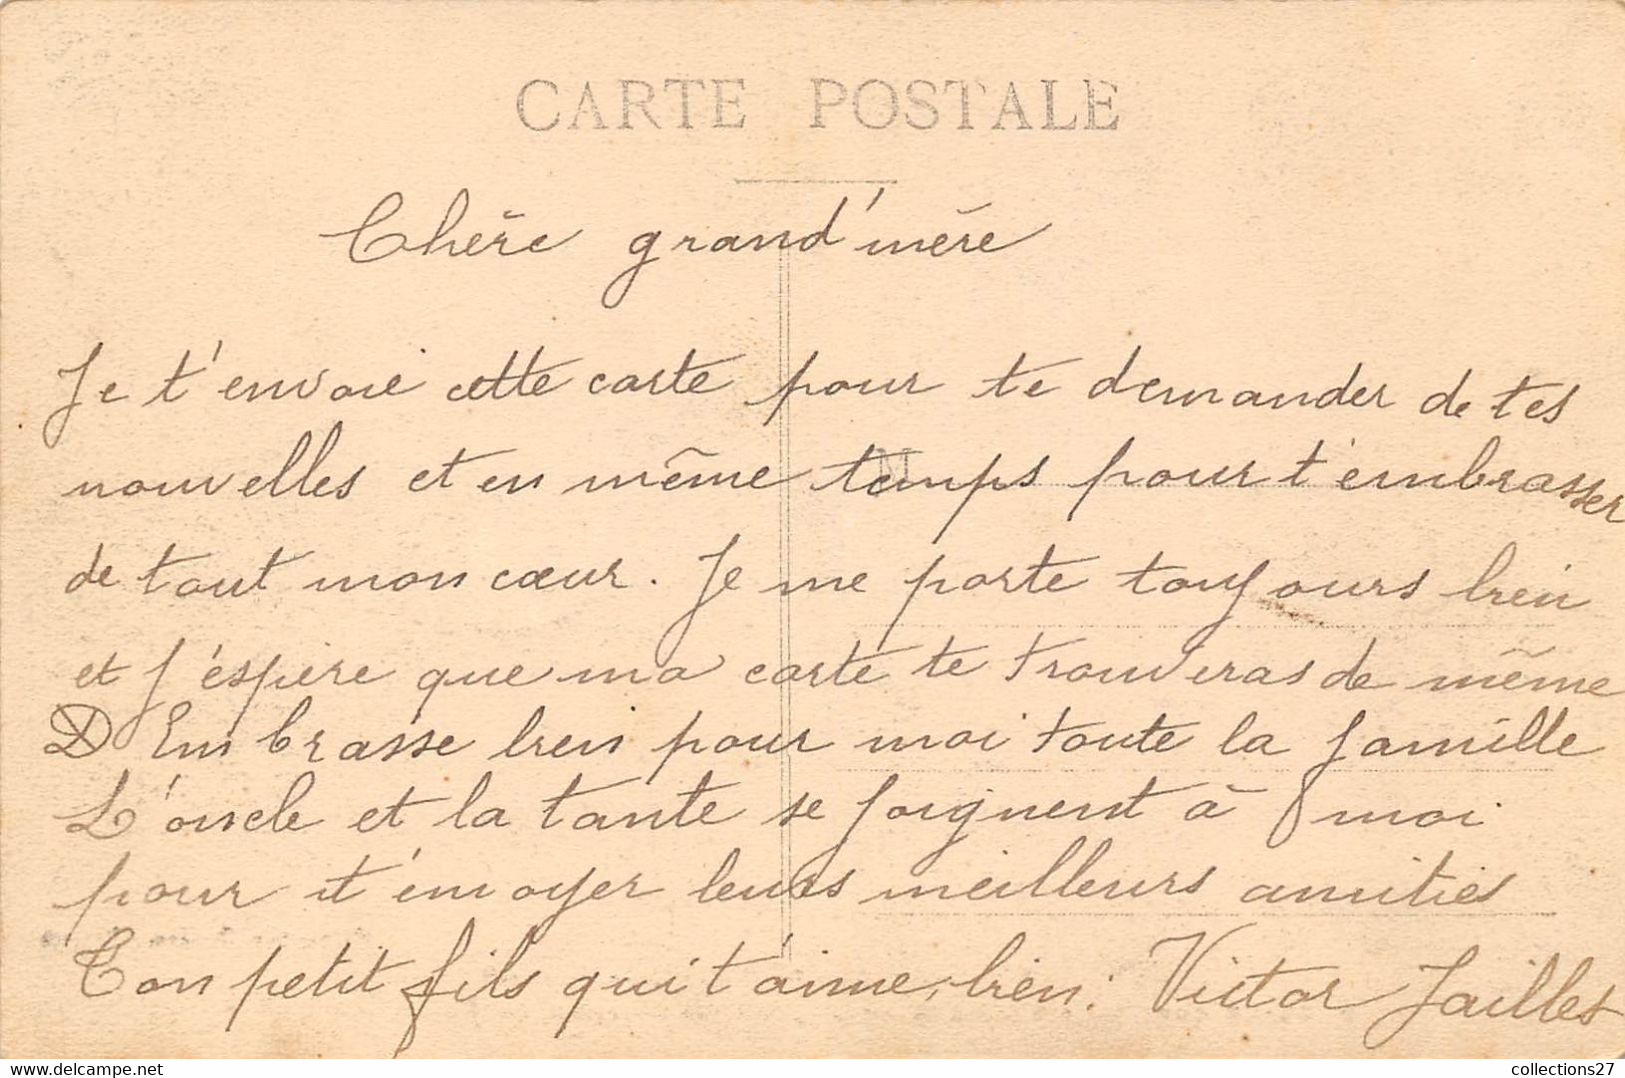 CARTE POSTALE
Chère grand'mère
Je t'envoie cette carte pour te demander de tes
nouvelles et en même temps pour t'embrasser
M
de tout mon cœur. Je me porte toujours bien
et j'espère que ma carte te trouveras de même
Embrasse bien pour moi toute la famille
L'oncle et la tante se joignent à moi
pour t'envoyer leurs meilleurs amitiés
Ton petit fils qui t'aime bien. Victor Jailles
delcampe.net
collections27